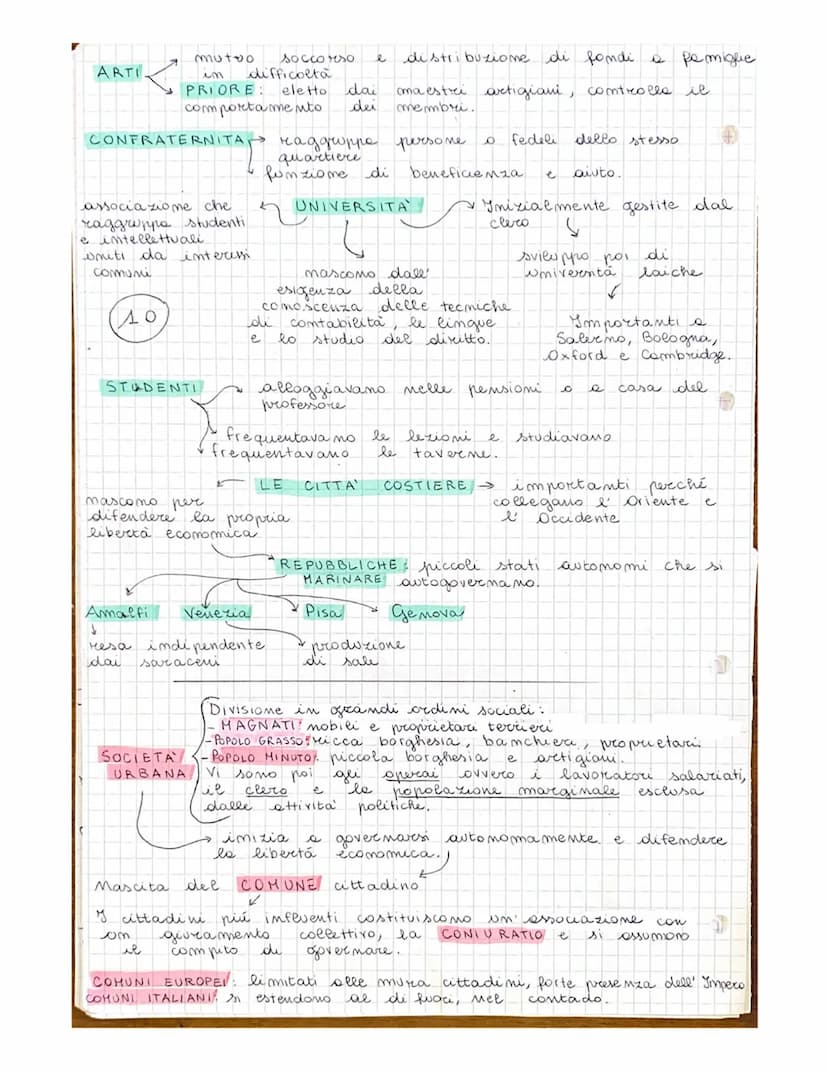 mutuo soccorso e distribuzione di fondi a famiglie
ARTI
in difficoltà
PRIORE: eletto dai maestri artigiani, controlla il
comportamento dei membri.
CONFRATERNITA
raggruppa persone o fedeli dello stesso
quartiere
funzione di beneficienza e aiuto.
associazione che
raggruppa studenti
e intellettuali
uniti da interessi
comuni
UNIVERSITA'
Inizialmente gestite dal
clero
sviluppo poi di
università laiche
Importanti a
Salerno, Bologna,
Oxford e Cambridge.
nascono dall'
esigenza della
conoscenza delle tecniche
di contabilità, le lingue
e lo studio del diritto.
10
STUDENTI
alloggiavano nelle pensioni o a casa del
professore
frequentavano le lezioni e studiavano
frequentavano le taverne.
LE CITTA' COSTIERE
importanti perché
collegano l'Oriente e
l'Occidente
nascono per
difendere la propria
libertà economica
REPUBBLICHE MARINARE: piccoli stati autonomi che si
autogovernano.
Amalfi Venezia Pisa Genova
resa indipendente
dai saraceni
produzione
di sale
SOCIETA'
URBANA
Divisione in grandi ordini sociali:
- MAGNATI: nobili e proprietari terrieri
- POPOLO GRASSO: ricca borghesia, banchieri, proprietari.
- POPOLO MINUTO: piccola borghesia e artigiani.
Vi sono poi gli operai ovvero i lavoratori salariati,
il clero e la popolazione marginale esclusa
dalle attività politiche.
inizia a governarsi autonomamente e difendere
la libertà economica.
Nascita del COMUNE cittadino
I cittadini più influenti costituiscono un'associazione con
un giuramento collettivo, la CONIURATIO e si assumono
il compito di governare.
COMUNI EUROPEI: limitati alle mura cittadini, forte presenza dell'Impero
COMUNI ITALIANI: si estendono al di fuori, nel contado.